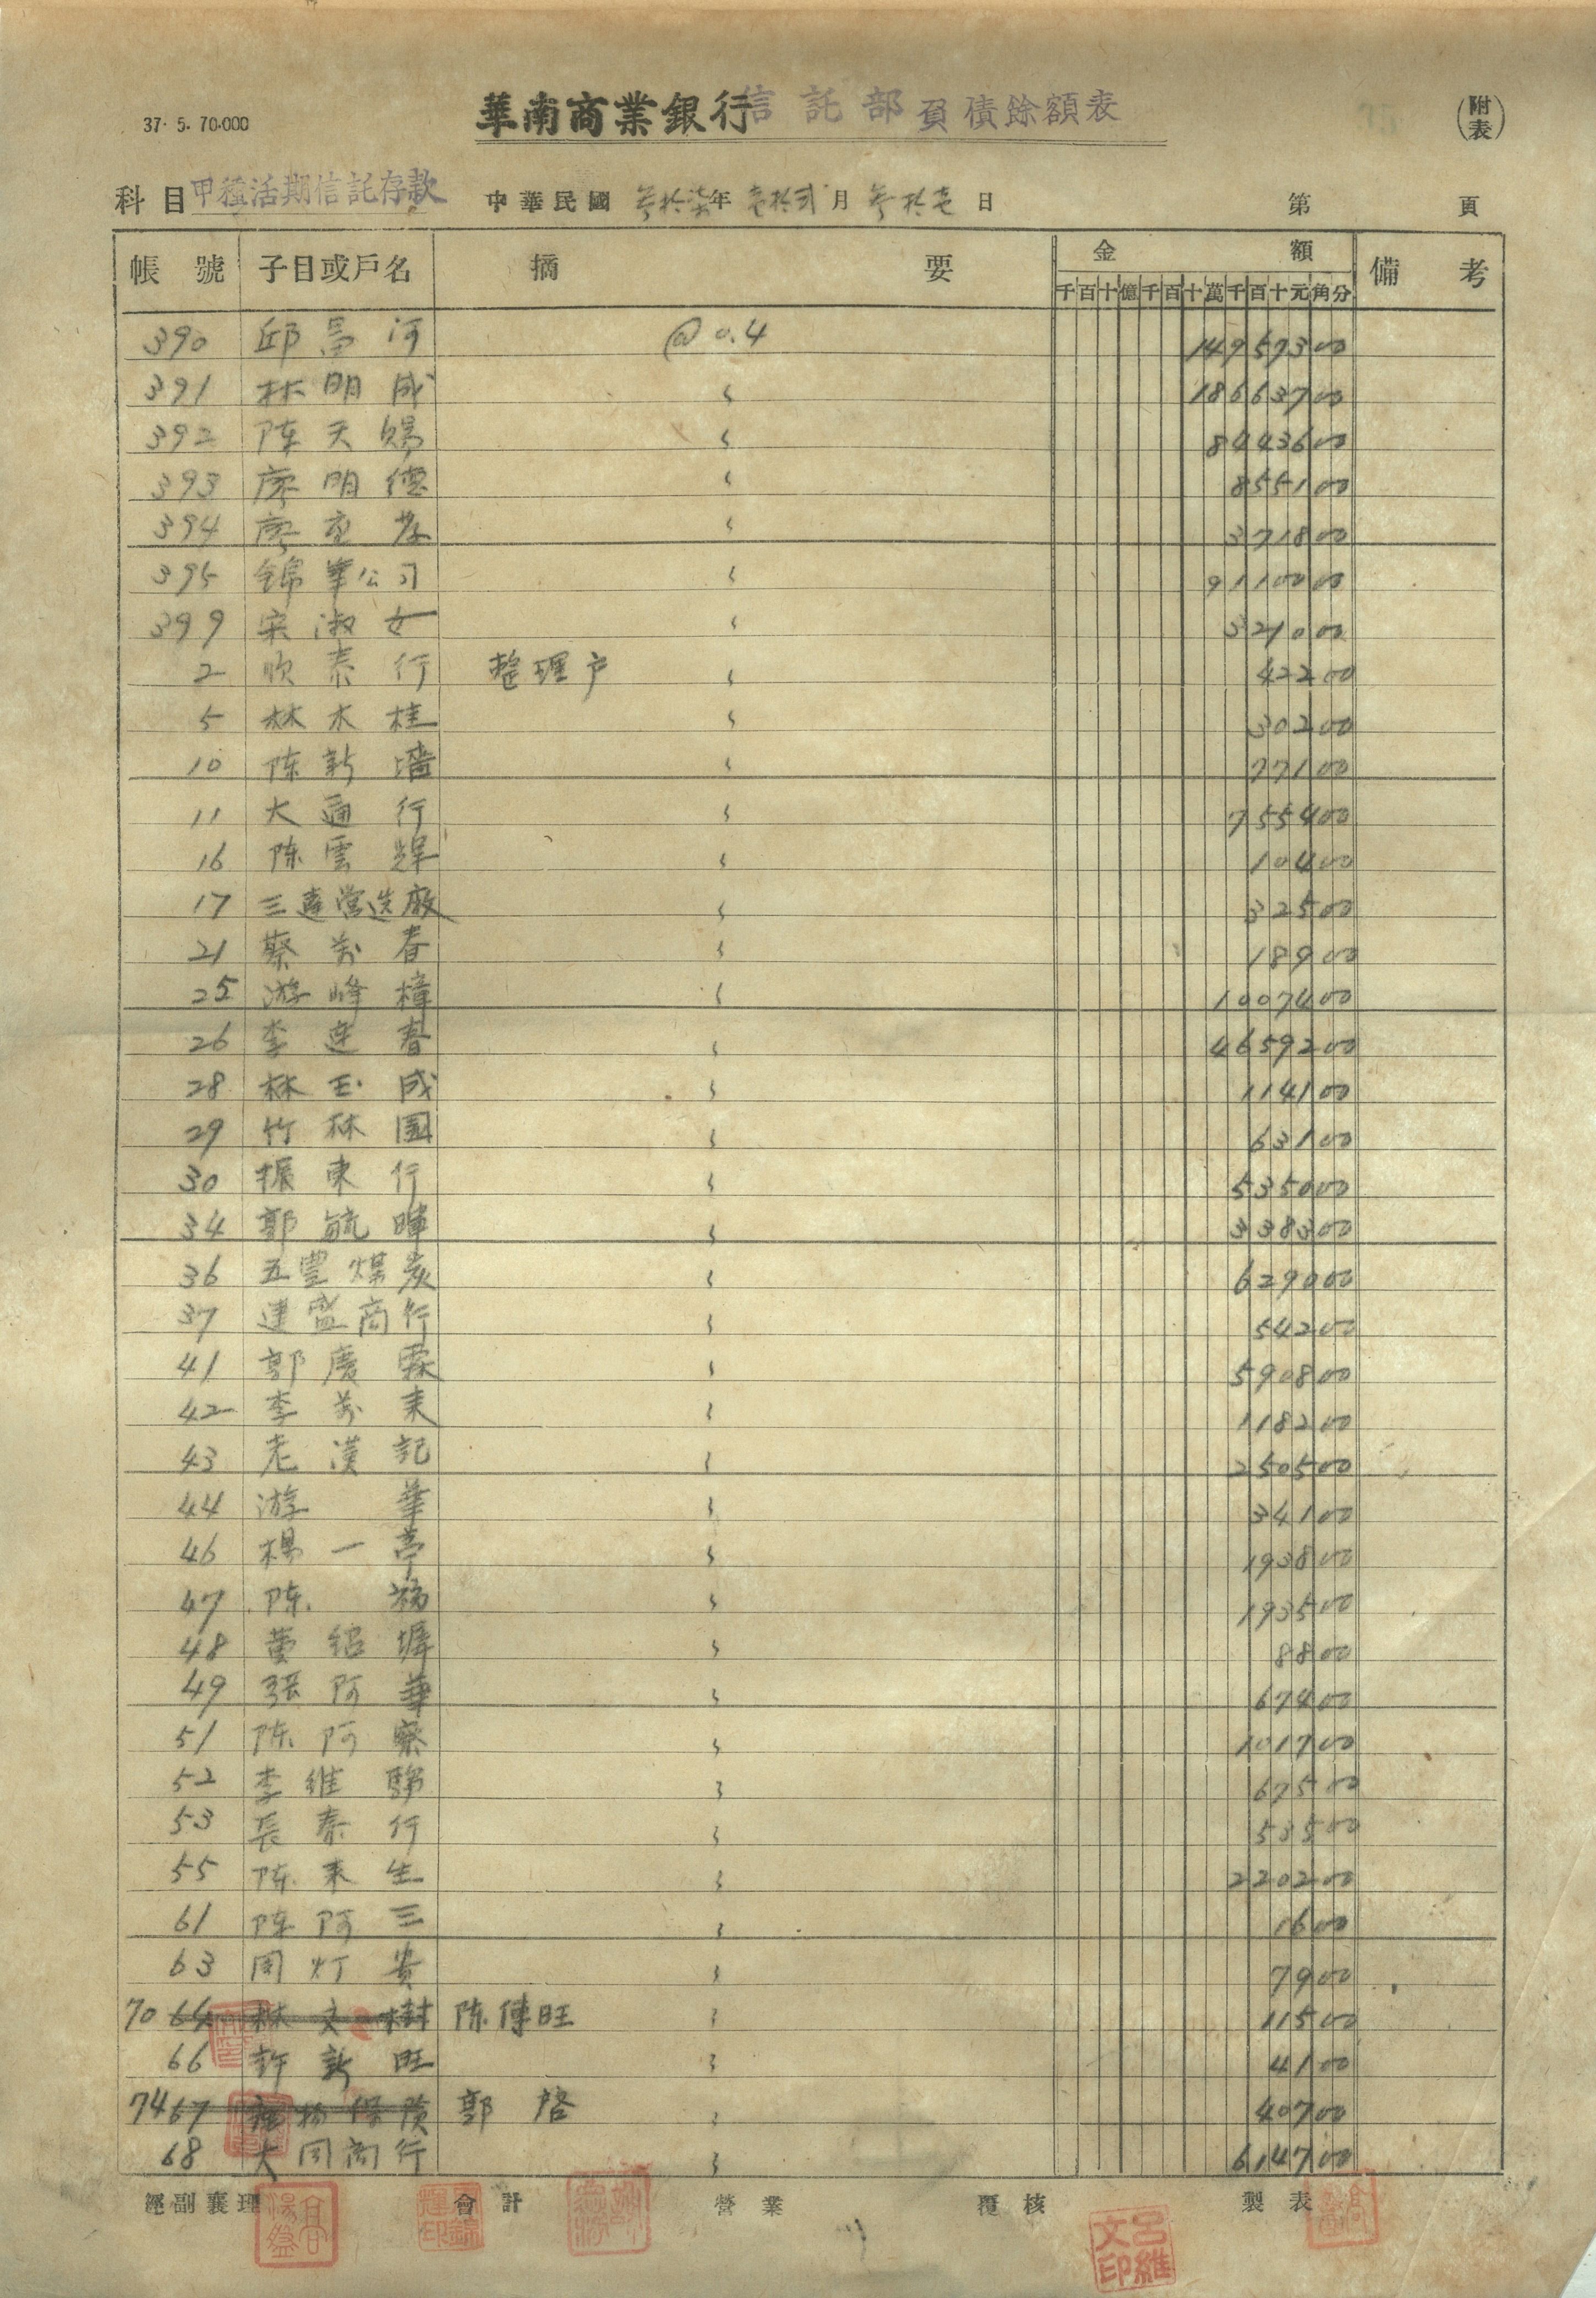 37. 5. 70.000
華南商業銀行信託部負債餘額表
(附表)
科目 甲種活期信託存款 中華民國 參拾柒年 壹拾弍月 參拾壱日 第 頁
帳號 子目或戶名 摘要 金額 備考
千百十億千百十萬千百十元角分
390 邱 河 @0.4 149573 00
391 林明成 〃 186637 00
392 陈天賜 〃 84436 00
393 廖明德 〃 8551 00
394 廖 〃 3718 00
395 錦華公司 〃 91100 00
399 宋淑女 〃 3210 00
2 泰行 整理户 〃 422 00
5 林木桂 〃 302 00
10 陈新墻 〃 771 00
11 大通行 〃 7554 00
16 陈雲輝 〃 104 00
17 三建营造廠 〃 325 00
21 蔡芳春 〃 189 00
25 游峰樟 〃 10074 00
26 李连春 〃 46592 00
28 林玉成 〃 1141 00
29 竹林園 〃 631 00
30 振東行 〃 5350 00
34 郭毓暉 〃 3383 00
36 五豐煤炭 〃 6290 00
37 建盛商行 〃 542 00
41 郭慶霖 〃 5908 00
42 李芳来 〃 1182 00
43 老漢記 〃 2505 00
44 游華 〃 341 00
46 楊一亭 〃 1938 00
47 陈 〃 1935 00
48 黄紹墀 〃 88 00
49 張阿華 〃 674 00
51 陈阿察 〃 1017 00
52 李維 〃 675 00
53 長泰行 〃 535 00
55 陈来生 〃 2202 00
61 陈阿三 〃 16 00
63 周灯貴 〃 79 00
70 64 林文樹 陈傳旺 〃 115 00
66 許新旺 〃 41 00
74 67 產物保險 郭啓 〃 407 00
68 大同商行 〃 6147 00
經副襄理 會計 營業 覆核 製表
呂維文印